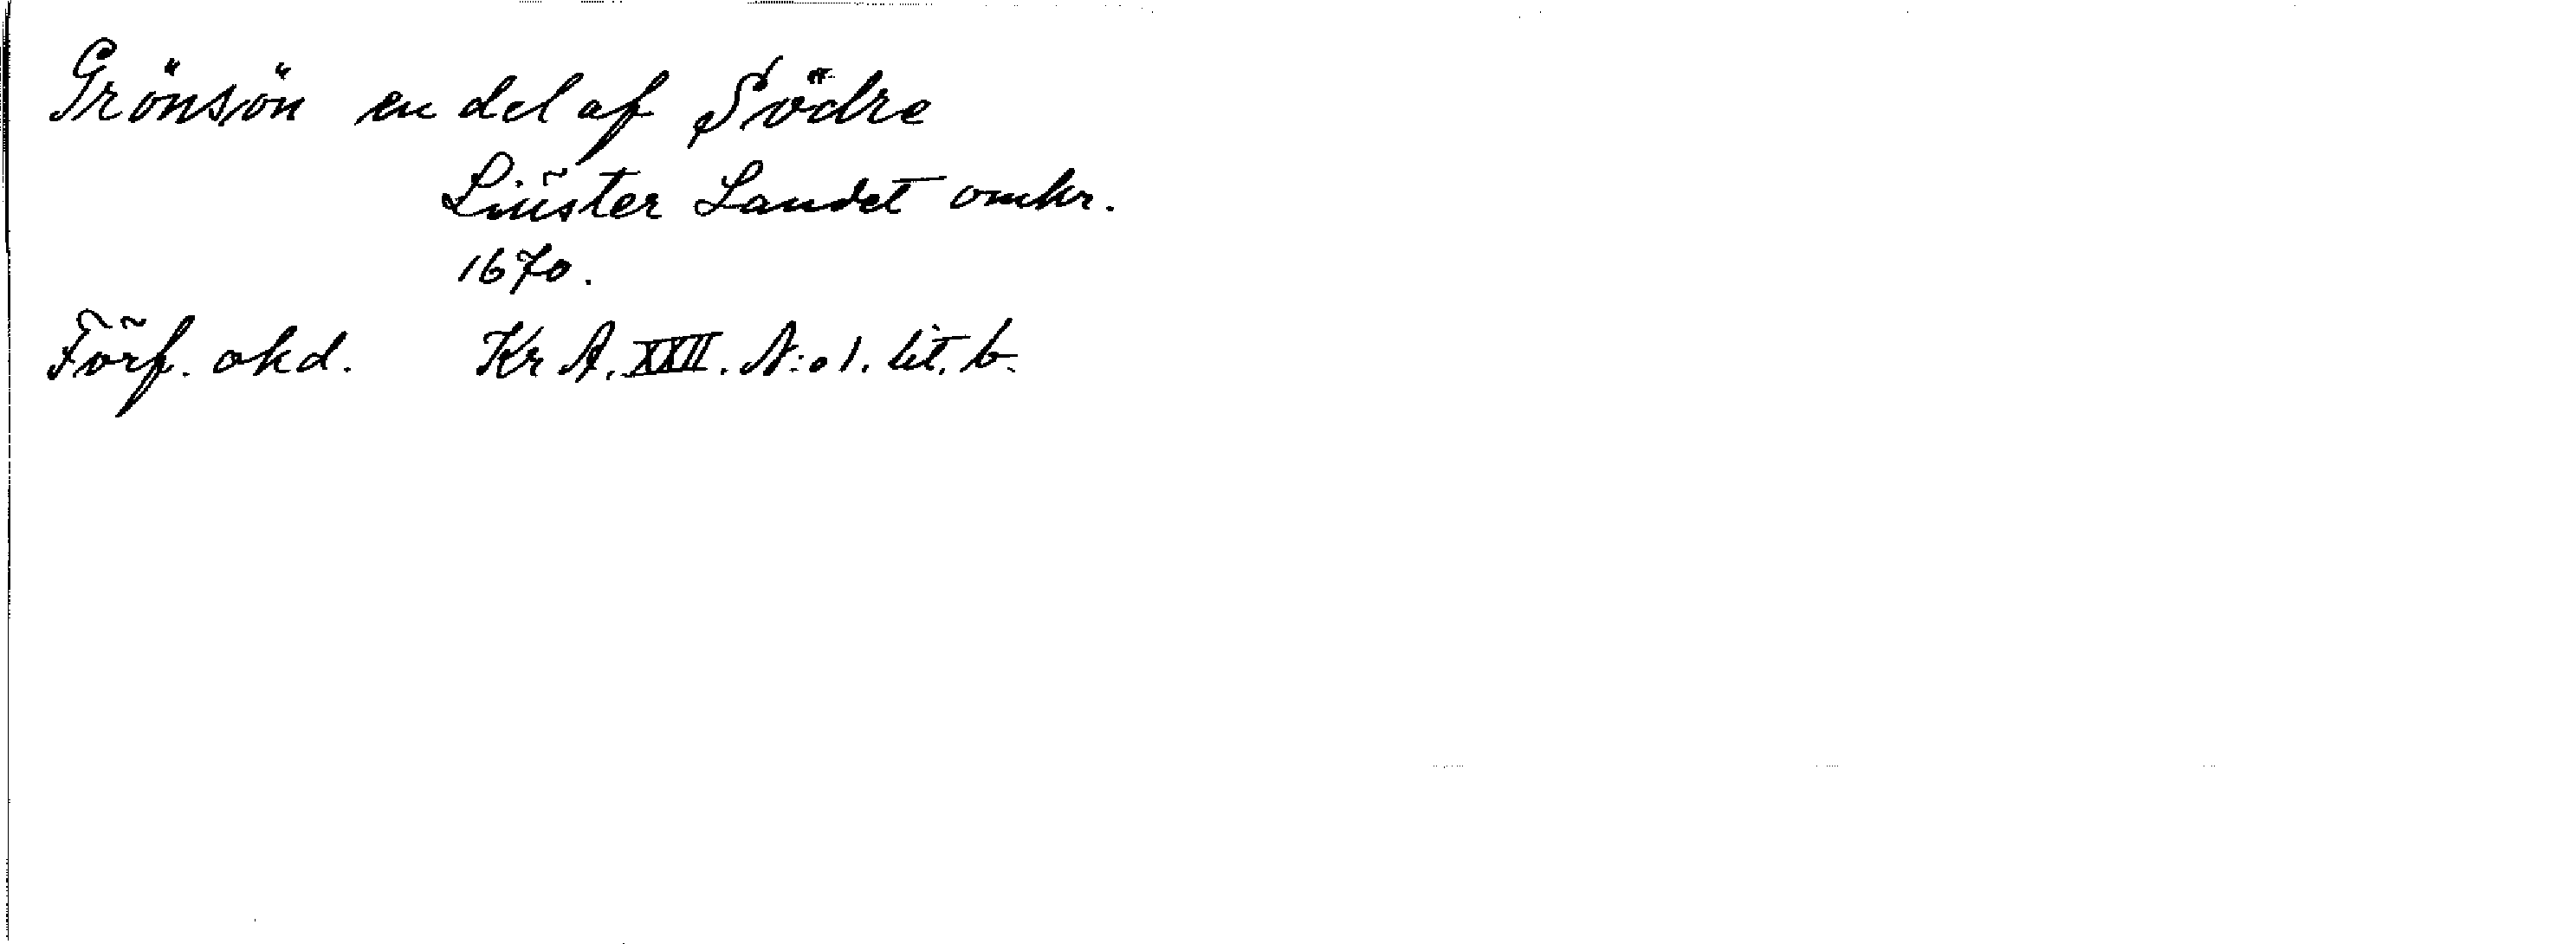 Grönsön en del af Södre
Liüster Landet omkr.
1670.
Förf. okd. Kr A. XXII. N:o 1. lit. b.